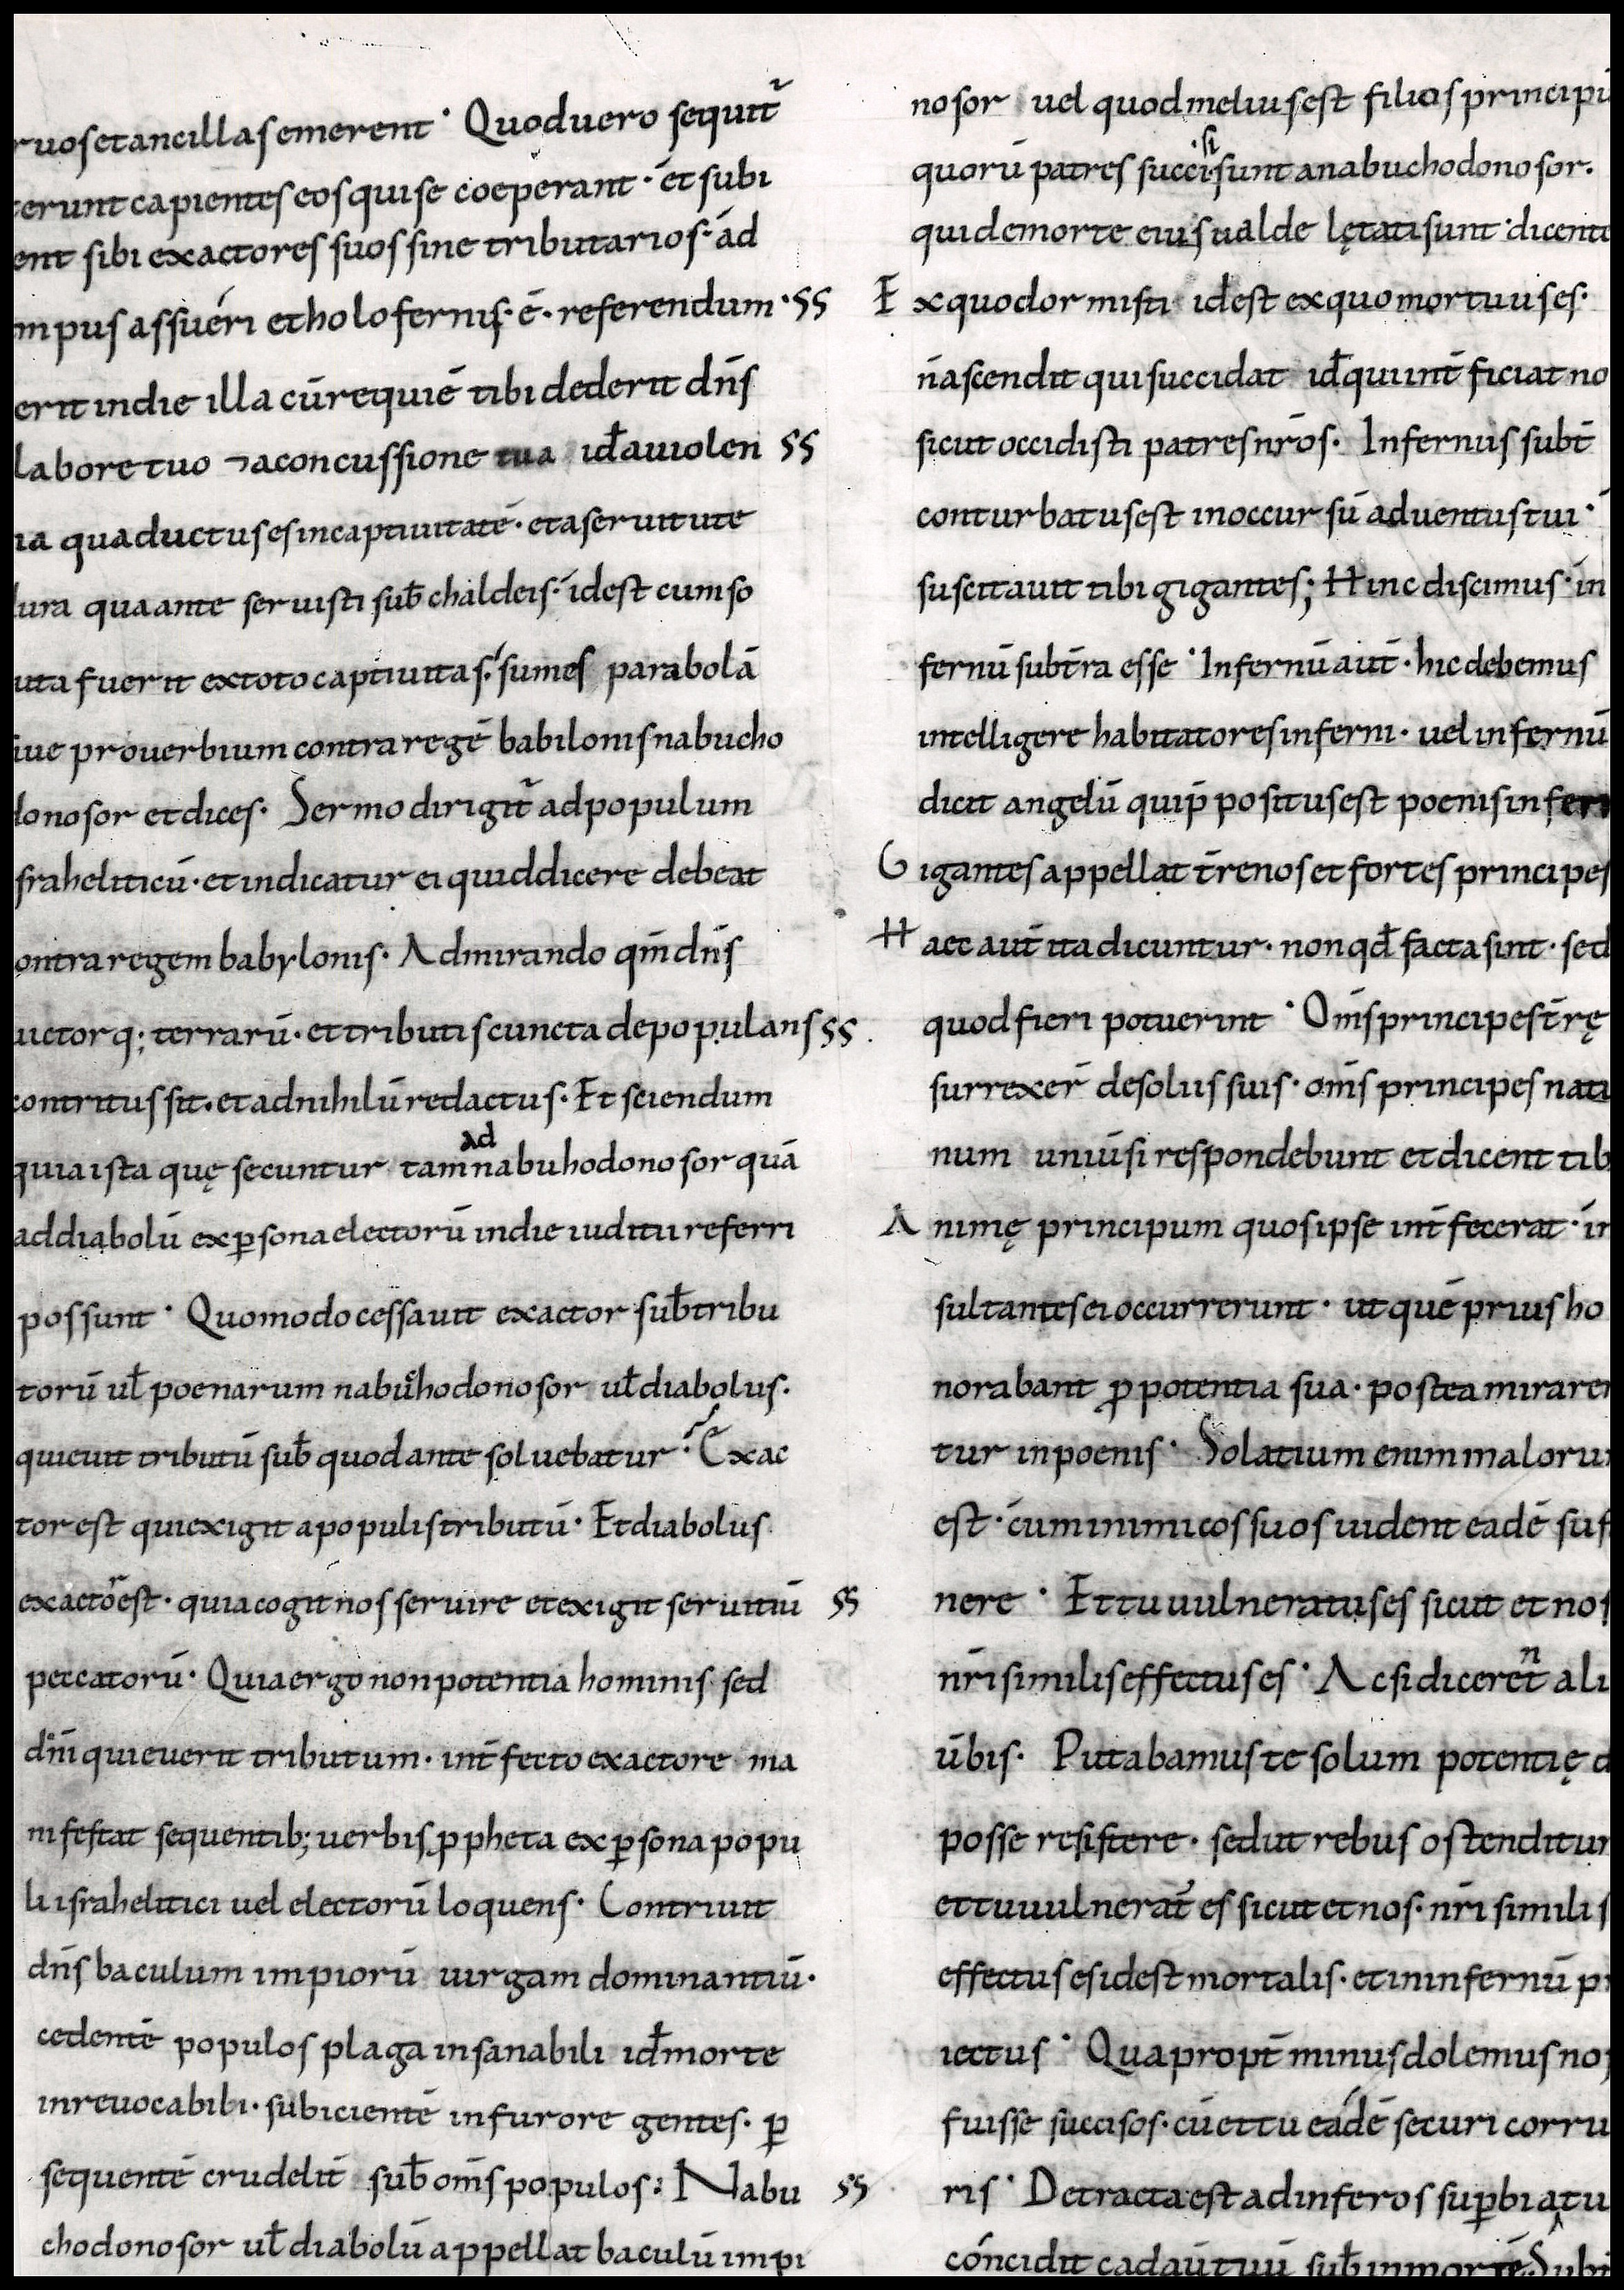 ruos et ancillas emerent · Quod uero sequit᷑
erunt capientes eos qui se coeperant · et subi
ent sibi exactores suos siue tributarios · ad
mpus assueri et holofernis · ē · referendum · ss
erit in die illa cū requiē tibi dederit dn̄s
labore tuo ⁊ a concussione tua id̄ a uiolen ss
ia qua ductus es in captiuitatē · et a seruitute
dura qua ante seruisti sub̄ chaldeis · idest cum so
uta fuerit ex toto captiuitas · sumes parabolā
iue prouerbium contra regē babilonis nabucho
donosor et dices · Sermo dirigit᷑ ad populum
israheliticū · et indicatur ei quid dicere debeat
ontra regem babylonis · Admirando qm̄ dn̄s
uictorq; terrarū · et tributis cuncta depopulans ss
contritus sit · et ad nihilū redactus · Et sciendum
quia ista quę secuntur tam ad nabuhodonosor quā
ad diabolū ex ꝑsona electorū in die iuditii referri
possunt · Quomodo cessauit exactor sub̄ tribu
torū ul̄ poenarum nabuchodonosor ul̄ diabolus ·
quieuit tributū sub̄ quod ante soluebatur · Exac
tor est qui exigit a populis tributū · Et diabolus
exactor est · quia cogit nos seruire et exigit seruitiū ss
peccatorū · Quia ergo non potentia hominis sed
dn̄i quieuerit tributum · int̄fecto exactore ma
nifestat sequentib; uerbis ꝓpheta ex ꝑsona popu
li israhelitici uel electorū loquens · Contriuit
dn̄s baculum impiorū uirgam dominantiū ·
cedentē populos plaga insanabili id̄ morte
inreuocabili · subicientē in furore gentes · ꝑ
sequentē crudelit̄ sub̄ om̄s populos : Nabu ss
chodonosor ul̄ diabolū appellat baculū impi
nosor uel quod melius est filios principū
quorū patres succisi sunt a nabuchodonosor ·
qui de morte eius ualde lętati sunt · dicente
Ex quo dormisti idest ex quo mortuus es ·
n̄ ascendit qui succidat id̄ qui int̄ficiat no
sicut occidisti patres nr̄os · Infernus subt̄
conturbatus est in occursū aduentus tui ·
suscitauit tibi gigantes ; Hinc discimus · in
fernū subt̄ra esse · Infernū aut̄ · hic debemus
intelligere habitatores inferni · uel infernū
dicit angelū qui p̄positus est poenis inferi
Gigantes appellat t̄renos et fortes principes
Haec aut̄ ita dicuntur · non qd̄ facta sint · sed
quod fieri potuerint · Om̄s principes t̄rę
surrexer̄ de soliis suis · om̄s principes nati
num uniūsi respondebunt et dicent tib
Animę principum quos ipse int̄fecerat · in
sultantes ei occurrerunt · ut quē prius ho
norabant ꝓ potentia sua · postea miraren
tur in poenis · Solatium enim malorum
est · cum inimicos suos uident eadē suf
nere · Et tu uulneratus es sicut et nos
nr̄i similis effectus es · Ac si dicerent ali
ūbis · Putabamus te solum potentię d
posse resistere · sed ut rebus ostenditur
et tu uulnerat᷒ es sicut et nos · nr̄i similis
effectus es idest mortalis · et in infernū p
iectus · Qua propt̄ minus dolemus nos
fuisse succisos · cū et tu eadē securi corru
ris · Detracta est ad inferos suꝑbia tu
concidit cadau̅ tuū sub̄ in morte Subt